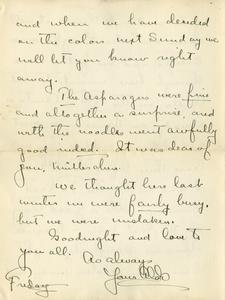 and when we have decided
on the colors next Sunday we
will let you know right
away.
The Asparagus were fine
and altogether a surprise, and
with the noodles went awfully
good indeed. It was dear of
you, Mütterchen.
We thought here last
winter we were fairly busy,
but we were mistaken.
Goodnight and love to
you all. As always
Friday Yours